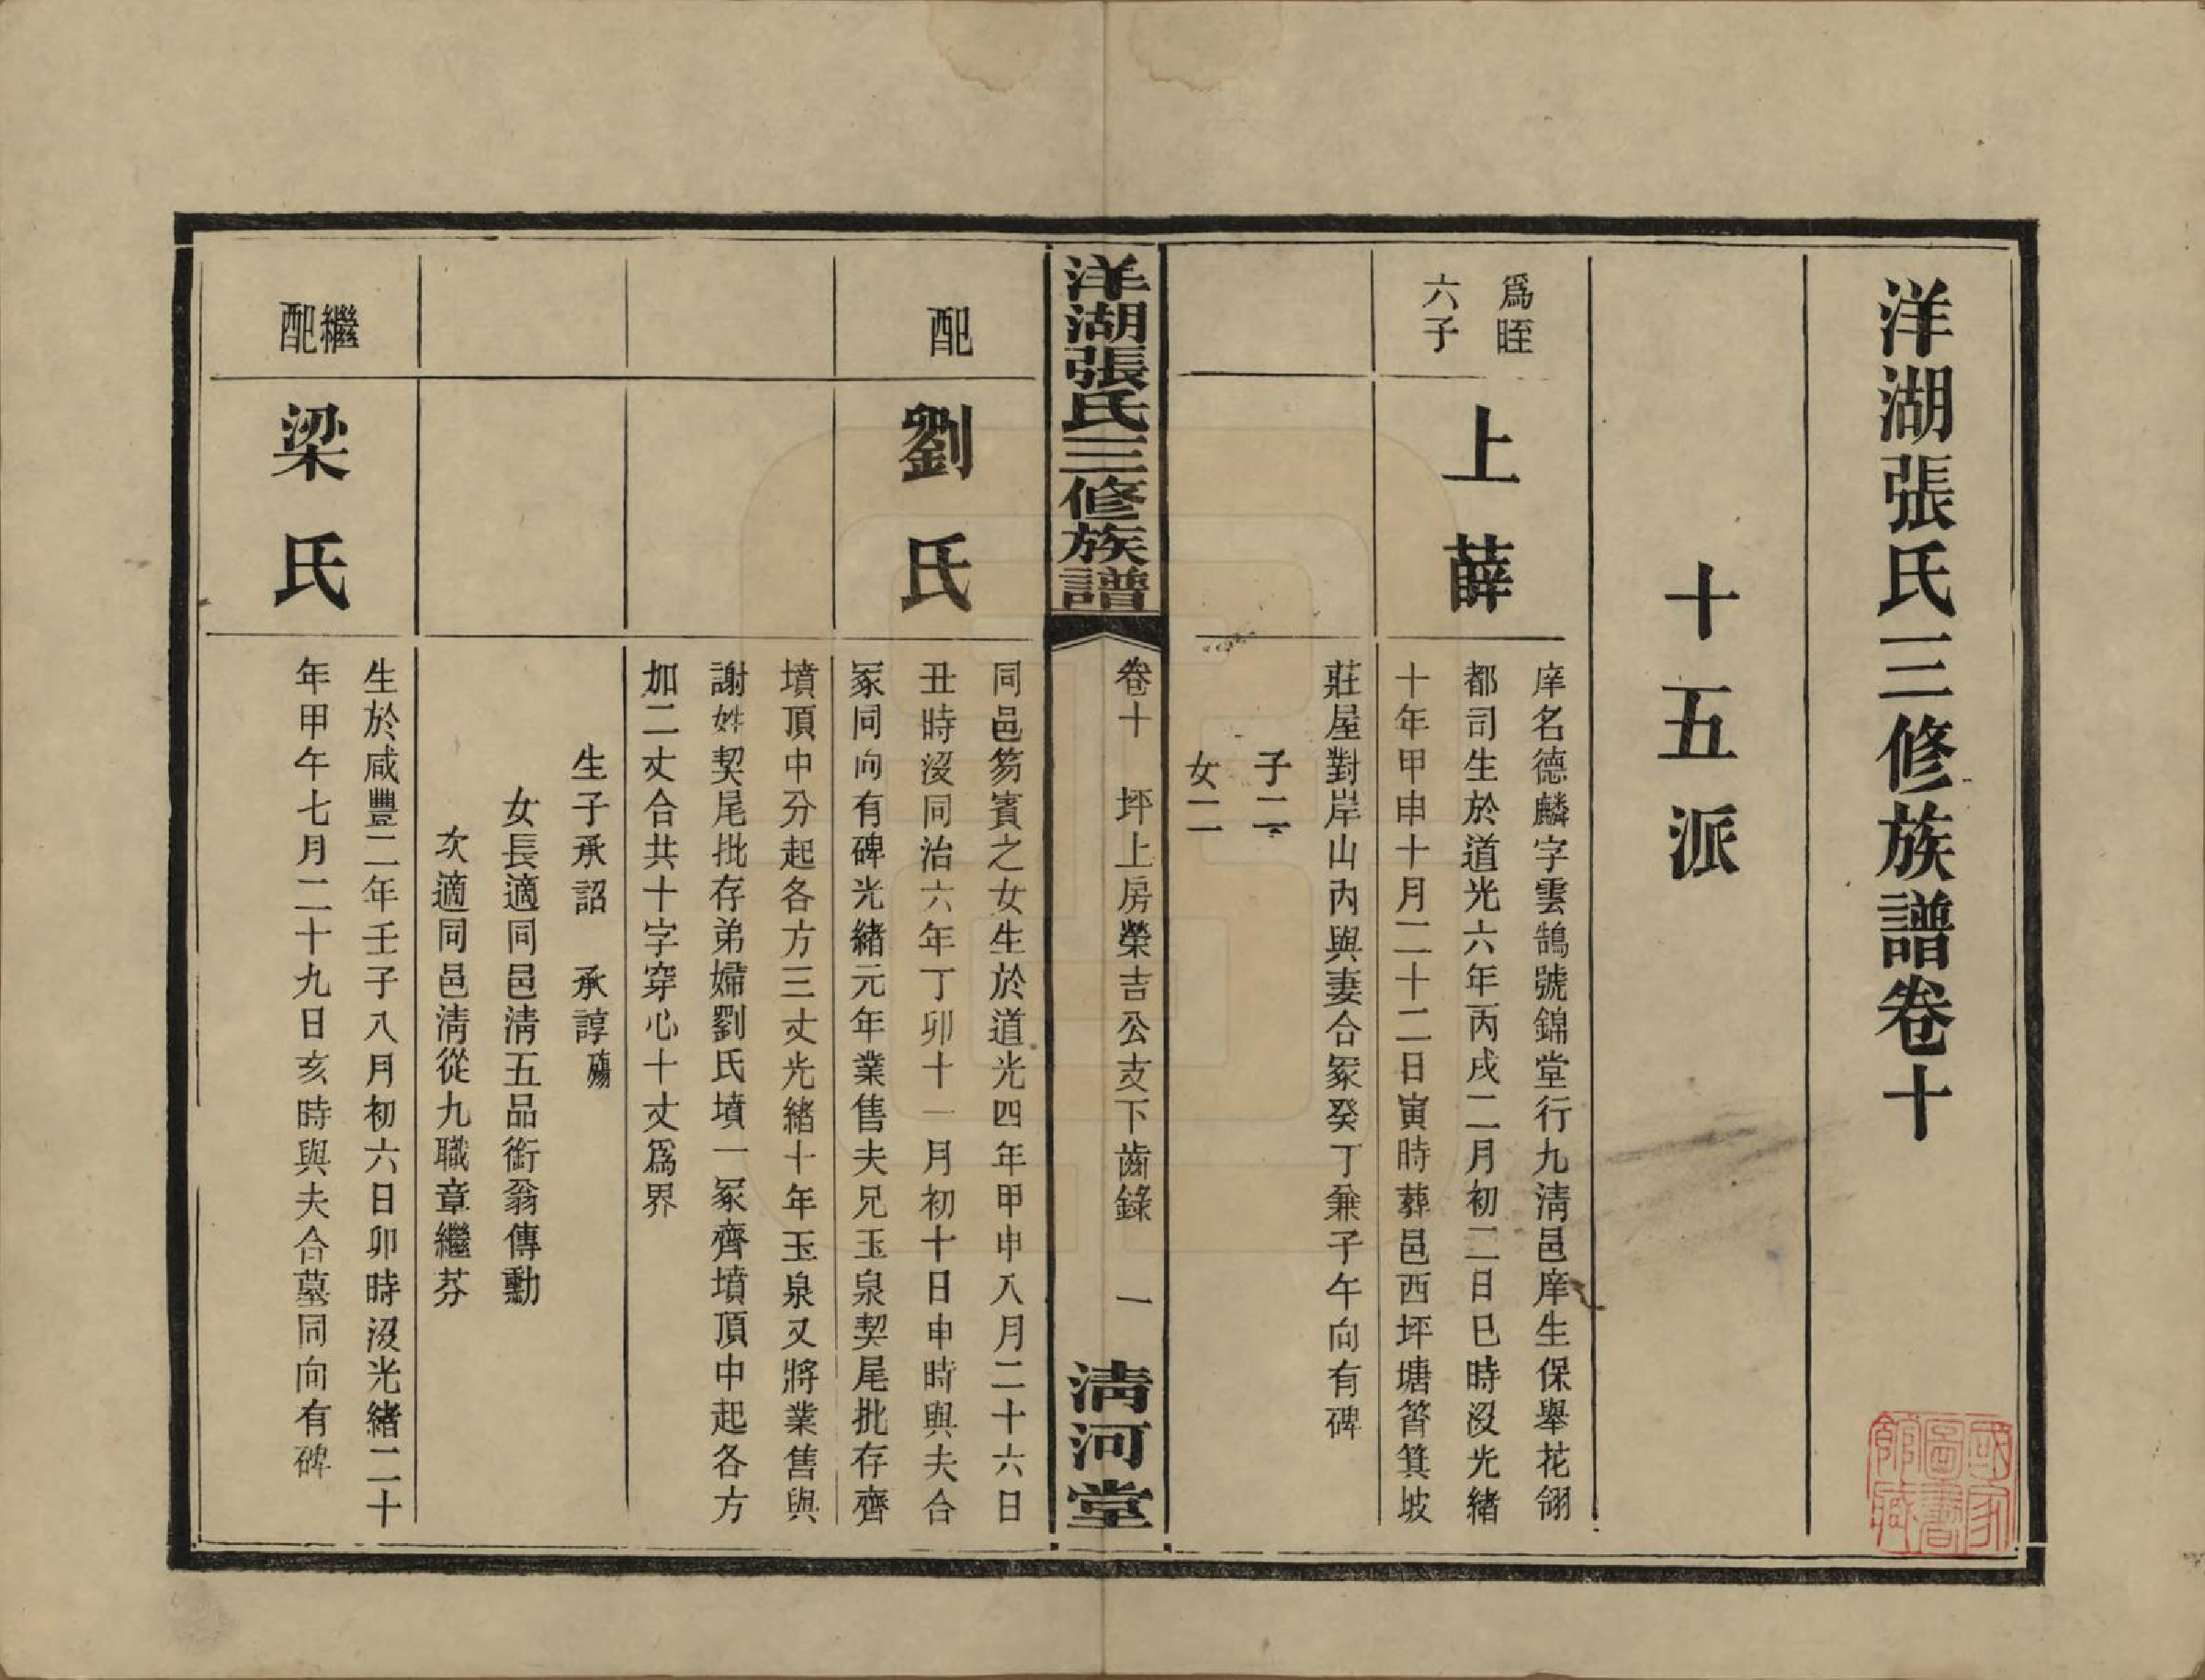 洋湖張氏三修族譜卷十
十五派
爲晊
六子
上薛
庠名德麟字雲鵠號錦堂行九淸邑庠生保舉花翎
都司生於道光六年丙戌二月初二日巳時沒光緒
十年甲申十月二十二日寅時葬邑西坪塘筲箕坡
莊屋對岸山內與妻合冢癸丁兼子午向有碑
子二
女二
洋湖張氏三修族譜
卷十 坪上房榮吉公支下齒錄 一
淸河堂
配
劉氏
同邑笏賓之女生於道光四年甲申八月二十六日
丑時沒同治六年丁卯十一月初十日申時與夫合
冢同向有碑光緒元年業售夫兄玉泉契尾批存齊
墳頂中分起各方三丈光緒十年玉泉又將業售與
謝姓契尾批存弟婦劉氏墳一冢齊墳頂中起各方
加二丈合共十字穿心十丈爲界
生子承詔 承諄殤
女長適同邑淸五品銜翁傳勳
次適同邑淸從九職章繼芬
繼配
梁氏
生於咸豐二年壬子八月初六日卯時沒光緒二十
年甲午七月二十九日亥時與夫合墓同向有碑
國家圖書館藏